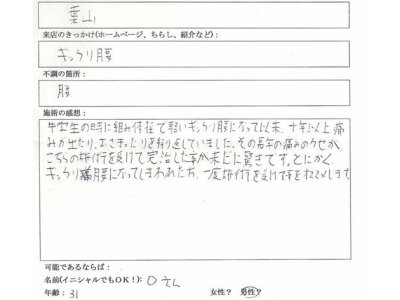 葉山
来店のきっかけ(ホームページ、ちらし、紹介など):
ギックリ腰
不調の箇所:
腰
施術の感想:
学生の時に組み体操で軽いギックリ腰になって以来、十年以上痛
みが出たり、おさまったりを繰り返していました。その長年の痛みのクセが、
こちらの施術を受けて完治した事が未だに驚きです。とにかく
ギックリ腰になってしまわれた方、一度施術を受ける事をおススメします
可能であるならば:
名前(イニシャルでもOK!): Oさん
年齢: 31 女性? 男性?